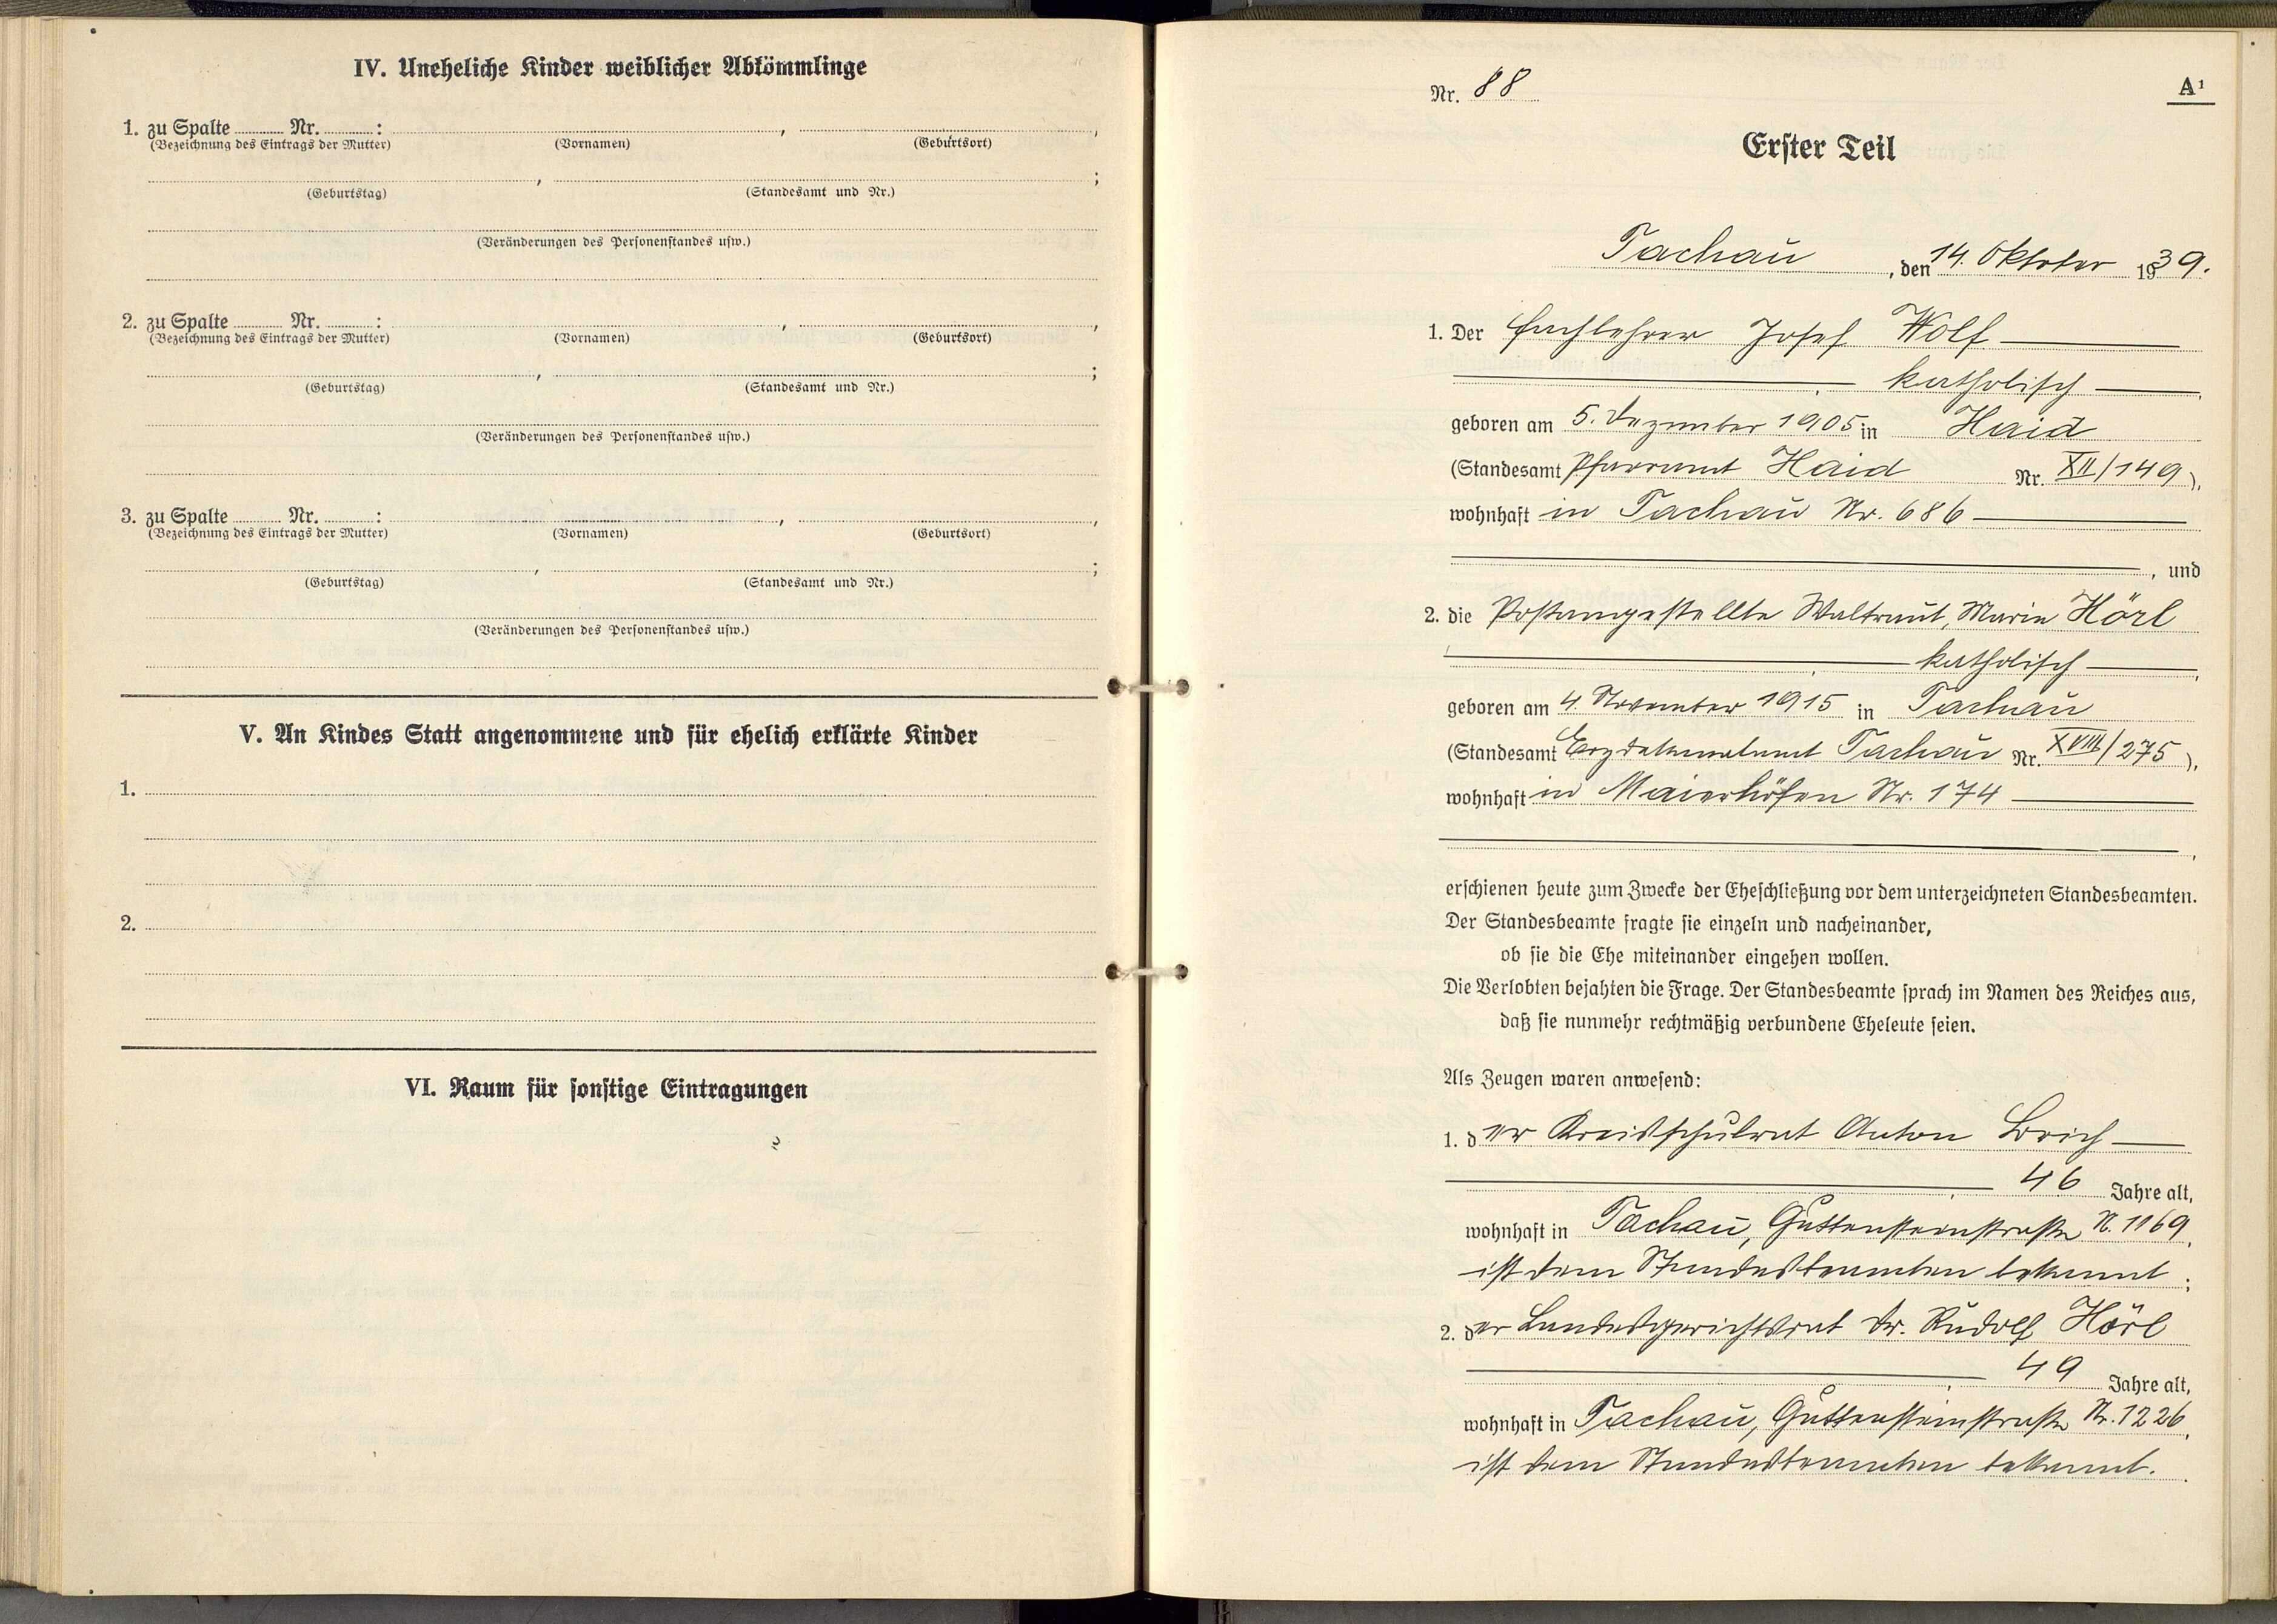 IV. Uneheliche Kinder weiblicher Abkömmlinge
1. zu Spalte Nr. : , ,
(Bezeichnung des Eintrags der Mutter) (Vornamen) (Geburtsort)
, ;
(Geburtstag) (Standesamt und Nr.)
(Veränderungen des Personenstandes usw.)
2. zu Spalte Nr. : , ,
(Bezeichnung des Eintrags der Mutter) (Vornamen) (Geburtsort)
, ;
(Geburtstag) (Standesamt und Nr.)
(Veränderungen des Personenstandes usw.)
3. zu Spalte Nr. : , ,
(Bezeichnung des Eintrags der Mutter) (Vornamen) (Geburtsort)
, ;
(Geburtstag) (Standesamt und Nr.)
(Veränderungen des Personenstandes usw.)
V. An Kindes Statt angenommene und für ehelich erklärte Kinder
1.
2.
VI. Raum für sonstige Eintragungen
Nr. 88
A¹
Erster Teil
Tachau, den 14. Oktober 1939.
1. Der Fachlehrer Josef Wolf
, katholisch,
geboren am 5. Dezember 1905 in Haid
(Standesamt Pfarramt Haid Nr. XII/149),
wohnhaft in Tachau Nr. 686
, und
2. die Postangestellte Waltraut, Marie Hörl
, katholisch,
geboren am 4. November 1915 in Tachau
(Standesamt Erzdekanalamt Tachau Nr. XVIII/275),
wohnhaft in Maierhöfen Nr. 174
,
erschienen heute zum Zwecke der Eheschließung vor dem unterzeichneten Standesbeamten.
Der Standesbeamte fragte sie einzeln und nacheinander,
ob sie die Ehe miteinander eingehen wollen.
Die Verlobten bejahten die Frage. Der Standesbeamte sprach im Namen des Reiches aus,
daß sie nunmehr rechtmäßig verbundene Eheleute seien.
Als Zeugen waren anwesend:
1. der Kreisschulrat Anton
, 46 Jahre alt,
wohnhaft in Tachau, Guttensteinstraße N. 1169,
ist dem Standesbeamten bekannt;
2. der Landesgerichtsrat Dr. Rudolf Hörl
, 49 Jahre alt,
wohnhaft in Tachau, Guttensteinstraße Nr. 1226,
ist dem Standesbeamten bekannt.